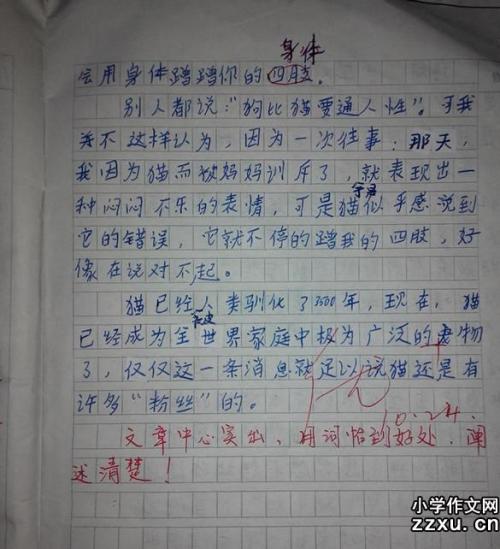 身体
会用身体蹭蹭你的四肢。
别人都说:“狗比猫要通人性”。可我
并不这样认为,因为一次往事:那天,
我因为猫而被妈妈训斥了,就表现出一
种闷闷不乐的表情,可是猫似乎感觉到
它的错误,它就不停的蹭我的四肢,好
像在说对不起。
猫已经人类驯化了3500年,现在,猫
已经成为全世界家庭中极为广泛的宠物
了,仅仅这一条消息就足以说猫还是有
许多“粉丝”的。
优
10.24.
文章中心突出,用词恰到好处,阐
述清楚!
小学作文网
zzxu.cn